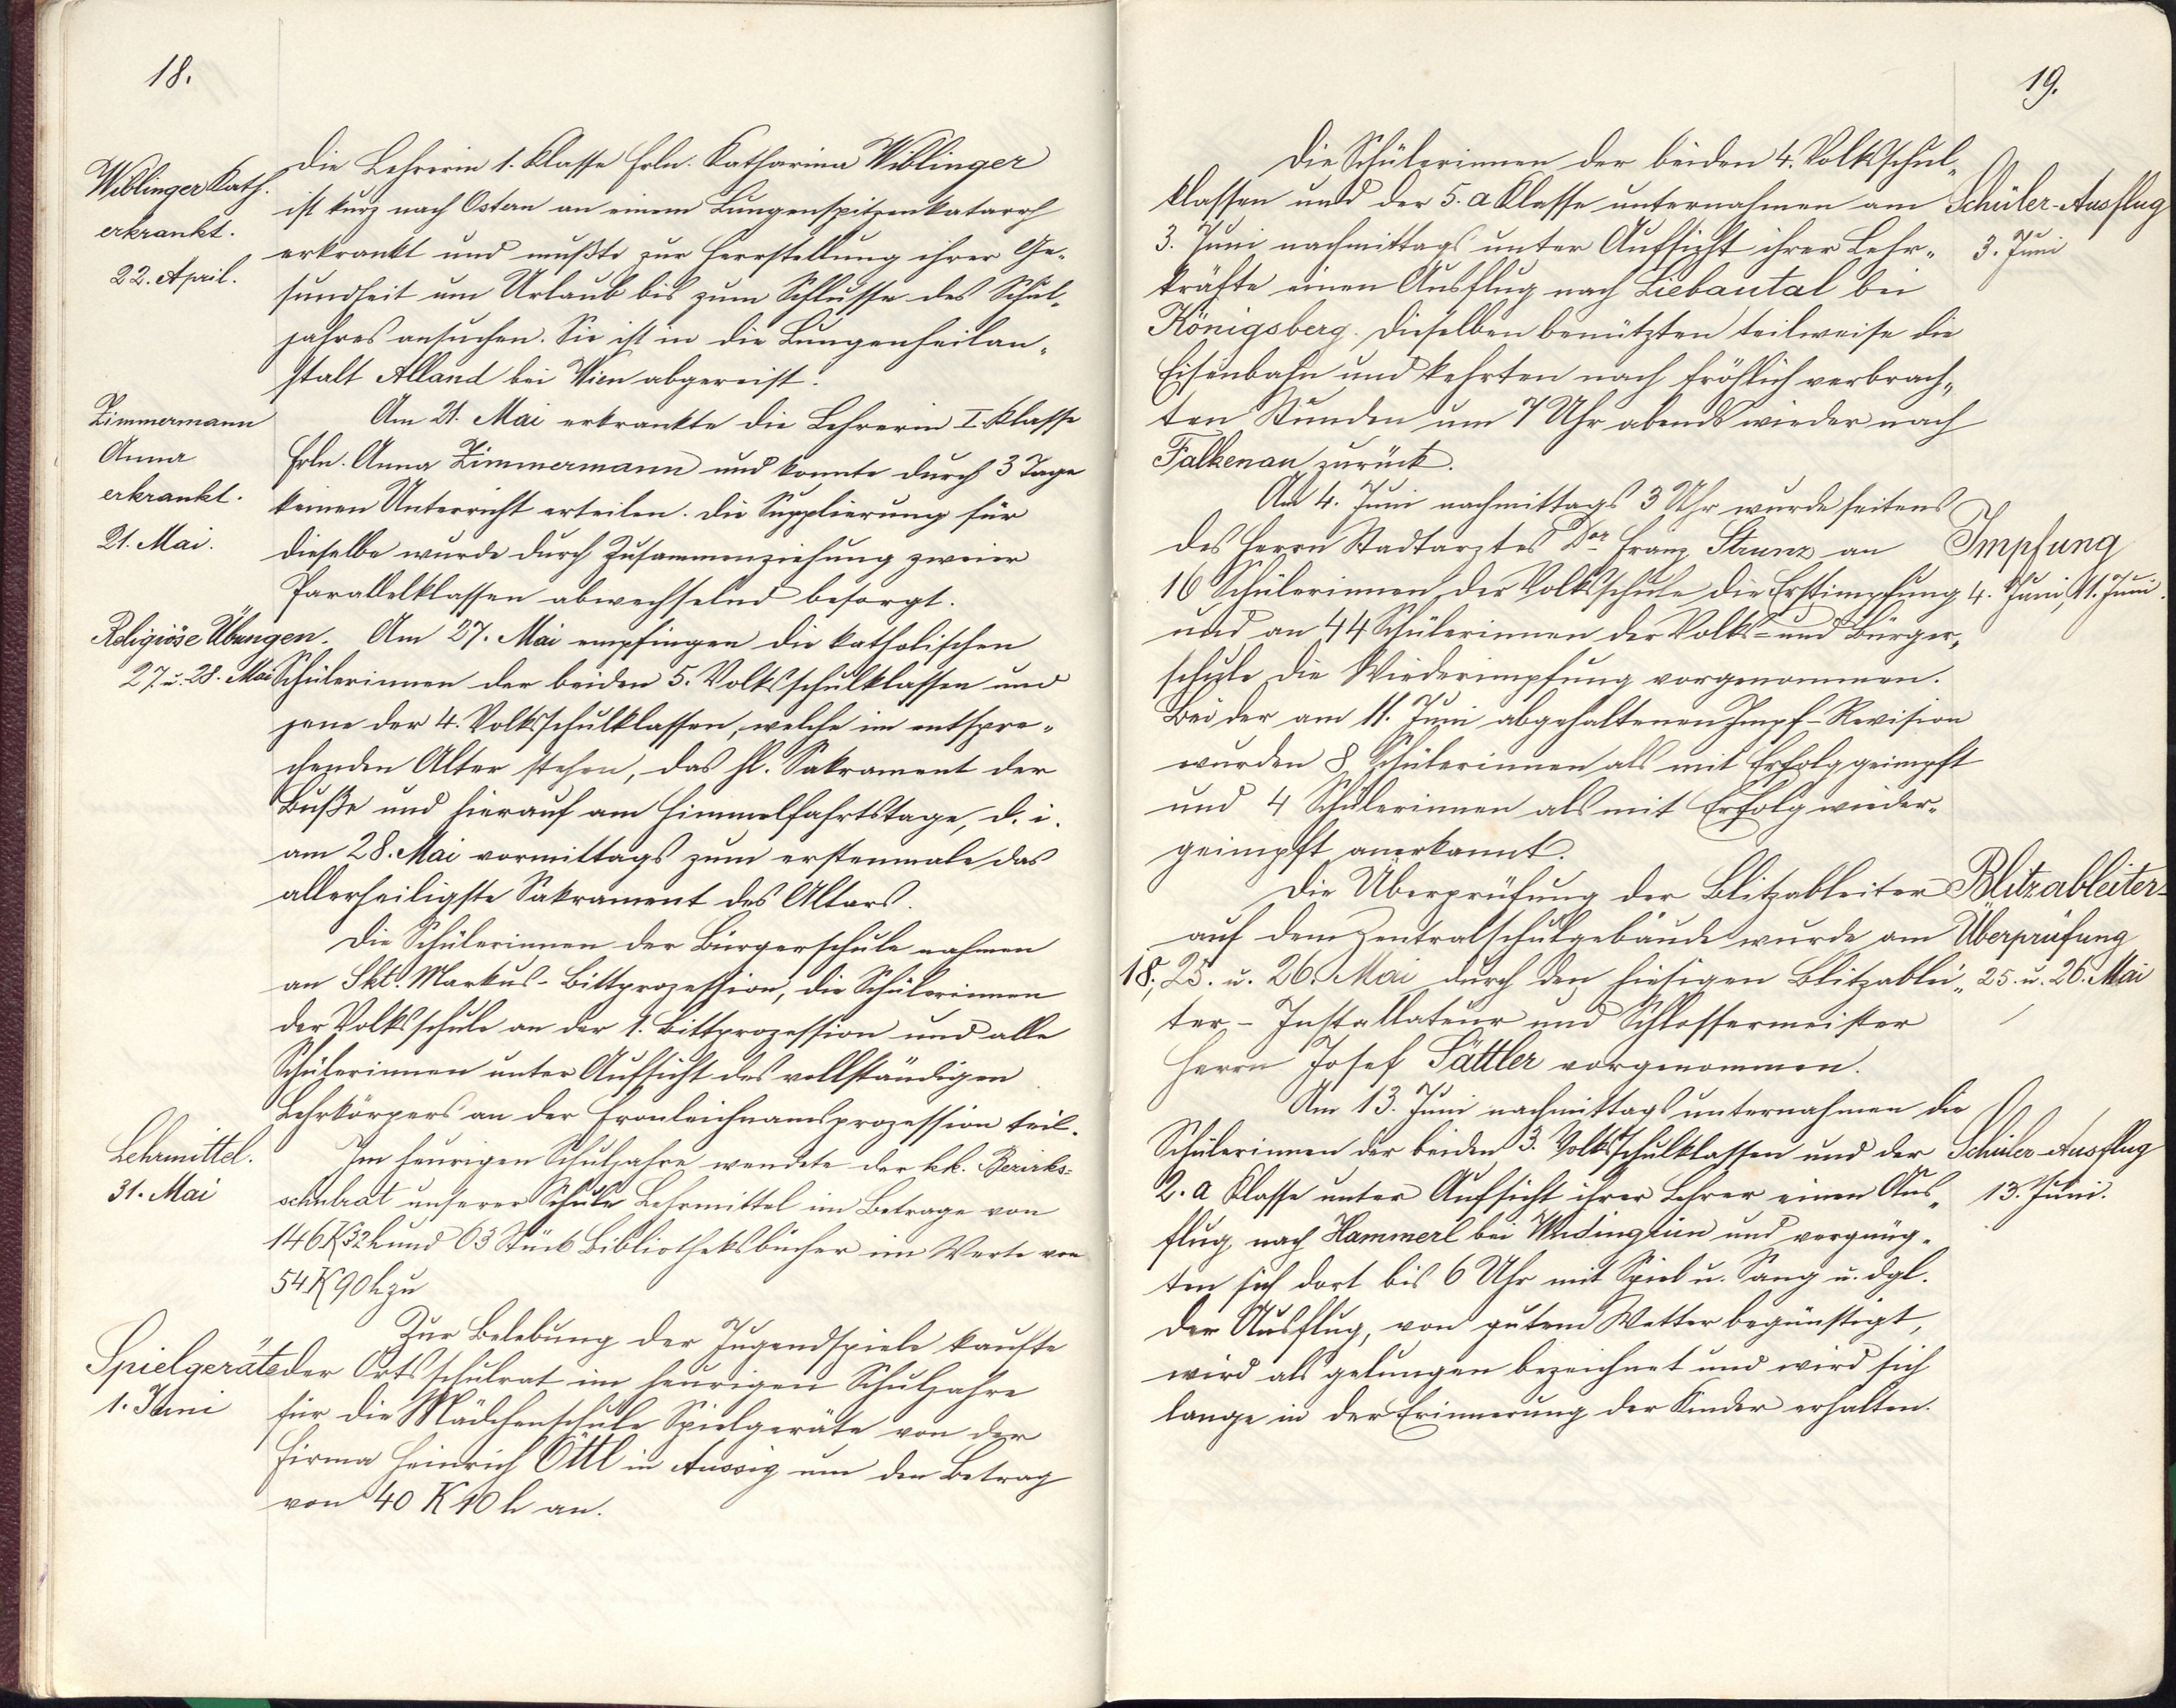 18.
Wiblinger Kath.
erkrankt.
22. April.
Die Lehrerin 1. Klasse Frln. Katharina Wiblinger
ist kurz nach Ostern an einem Lungenspitzenkatarrh
erkrankt und mußte zur Herstellung ihrer Ge-
sundheit um Urlaub bis zum Schlusse des Schul-
jahres ansuchen. Sie ist in die Lungenheilan-
stalt Alland bei Wien abgereist.
Zimmermann
Anna
erkrankt.
21. Mai.
Am 21. Mai erkrankte die Lehrerin I. Klasse
Frln. Anna Zimmermann und konnte durch 3 Tage
keinen Unterricht erteilen. Die Supplierung für
dieselbe wurde durch Zusammenziehung zweier
Parallelklassen abwechselnd besorgt.
Religiöse Übungen.
27. u. 28. Mai
Am 27. Mai empfingen die katholischen
Schülerinnen der beiden 5. Volksschulklassen und
jene der 4. Volksschulklassen, welche im entspre-
chenden Alter stehen, das hl. Sakrament der
Buße und hierauf am Himmelfahrtstage, d. i.
am 28. Mai vormittags zum erstenmale das
allerheiligste Sakrament des Altars.
Die Schülerinnen der Bürgerschule nahmen
an Skt. Markus-Bittprozession, die Schülerinnen
der Volksschule an der 1. Bittprozession und alle
Schülerinnen unter Aufsicht des vollständigen
Lehrkörpers an der Fronleichnamsprozession teil.
Lehrmittel.
31. Mai
Im heurigen Schuljahre wendete der k.k. Bezirks-
schulrat unserer Schule Lehrmittel im Betrage von
146 K 32 h und 63 Stück Bibliotheksbücher im Werte von
54 K 90 h zu
Spielgeräte
1. Juni
Zur Belebung der Jugendspiele kaufte
der Ortsschulrat im heurigen Schuljahre
für die Mädchenschule Spielgeräte von der
Firma Heinrich Öttl in Aussig um den Betrag
von 40 K 10 h an.
19.
Die Schülerinnen der beiden 4. Volksschul-
klassen und der 5. a Klasse unternahmen am
3. Juni nachmittags unter Aufsicht ihrer Lehr-
kräfte einen Ausflug nach Liebautal bei
Königsberg. Dieselben benützten teilweise die
Eisenbahn und kehrten nach fröhlich verbrach-
ten Stunden um 7 Uhr abends wieder nach
Falkenau zurück.
Schüler-Ausflug
3. Juni
Am 4. Juni nachmittags 3 Uhr wurde seitens
des Herrn Stadtarztes Dor Franz Strunz an
16 Schülerinnen der Volksschule die Erstimpfung
und an 44 Schülerinnen der Volks- und Bürger-
schule die Wiederimpfung vorgenommen.
Bei der am 11. Juni abgehaltenen Impf-Revision
wurden 8 Schülerinnen als mit Erfolg geimpft
und 4 Schülerinnen als mit Erfolg wieder-
geimpft anerkannt.
Impfung
4. Juni, 11. Juni.
Die Überprüfung der Blitzableiter
auf dem Zentralschulgebäude wurde am
18., 25. u. 26. Mai durch den hiesigen Blitzablei-
ter-Installateur und Schlossermeister
Herrn Josef Sattler vorgenommen.
Blitzableiter-
Überprüfung
25. u. 26. Mai
Am 13. Juni nachmittags unternahmen die
Schülerinnen der beiden 3. Volksschulklassen und der
2. a Klasse unter Aufsicht ihrer Lehrer einen Aus-
flug nach Hammerl bei Wudingrün und vergnüg-
ten sich dort bis 6 Uhr mit Spiel u. Sang u. dgl.
Der Ausflug, von gutem Wetter begünstigt,
wird als gelungen bezeichnet und wird sich
lange in der Erinnerung der Kinder erhalten.
Schüler-Ausflug
13. Juni.